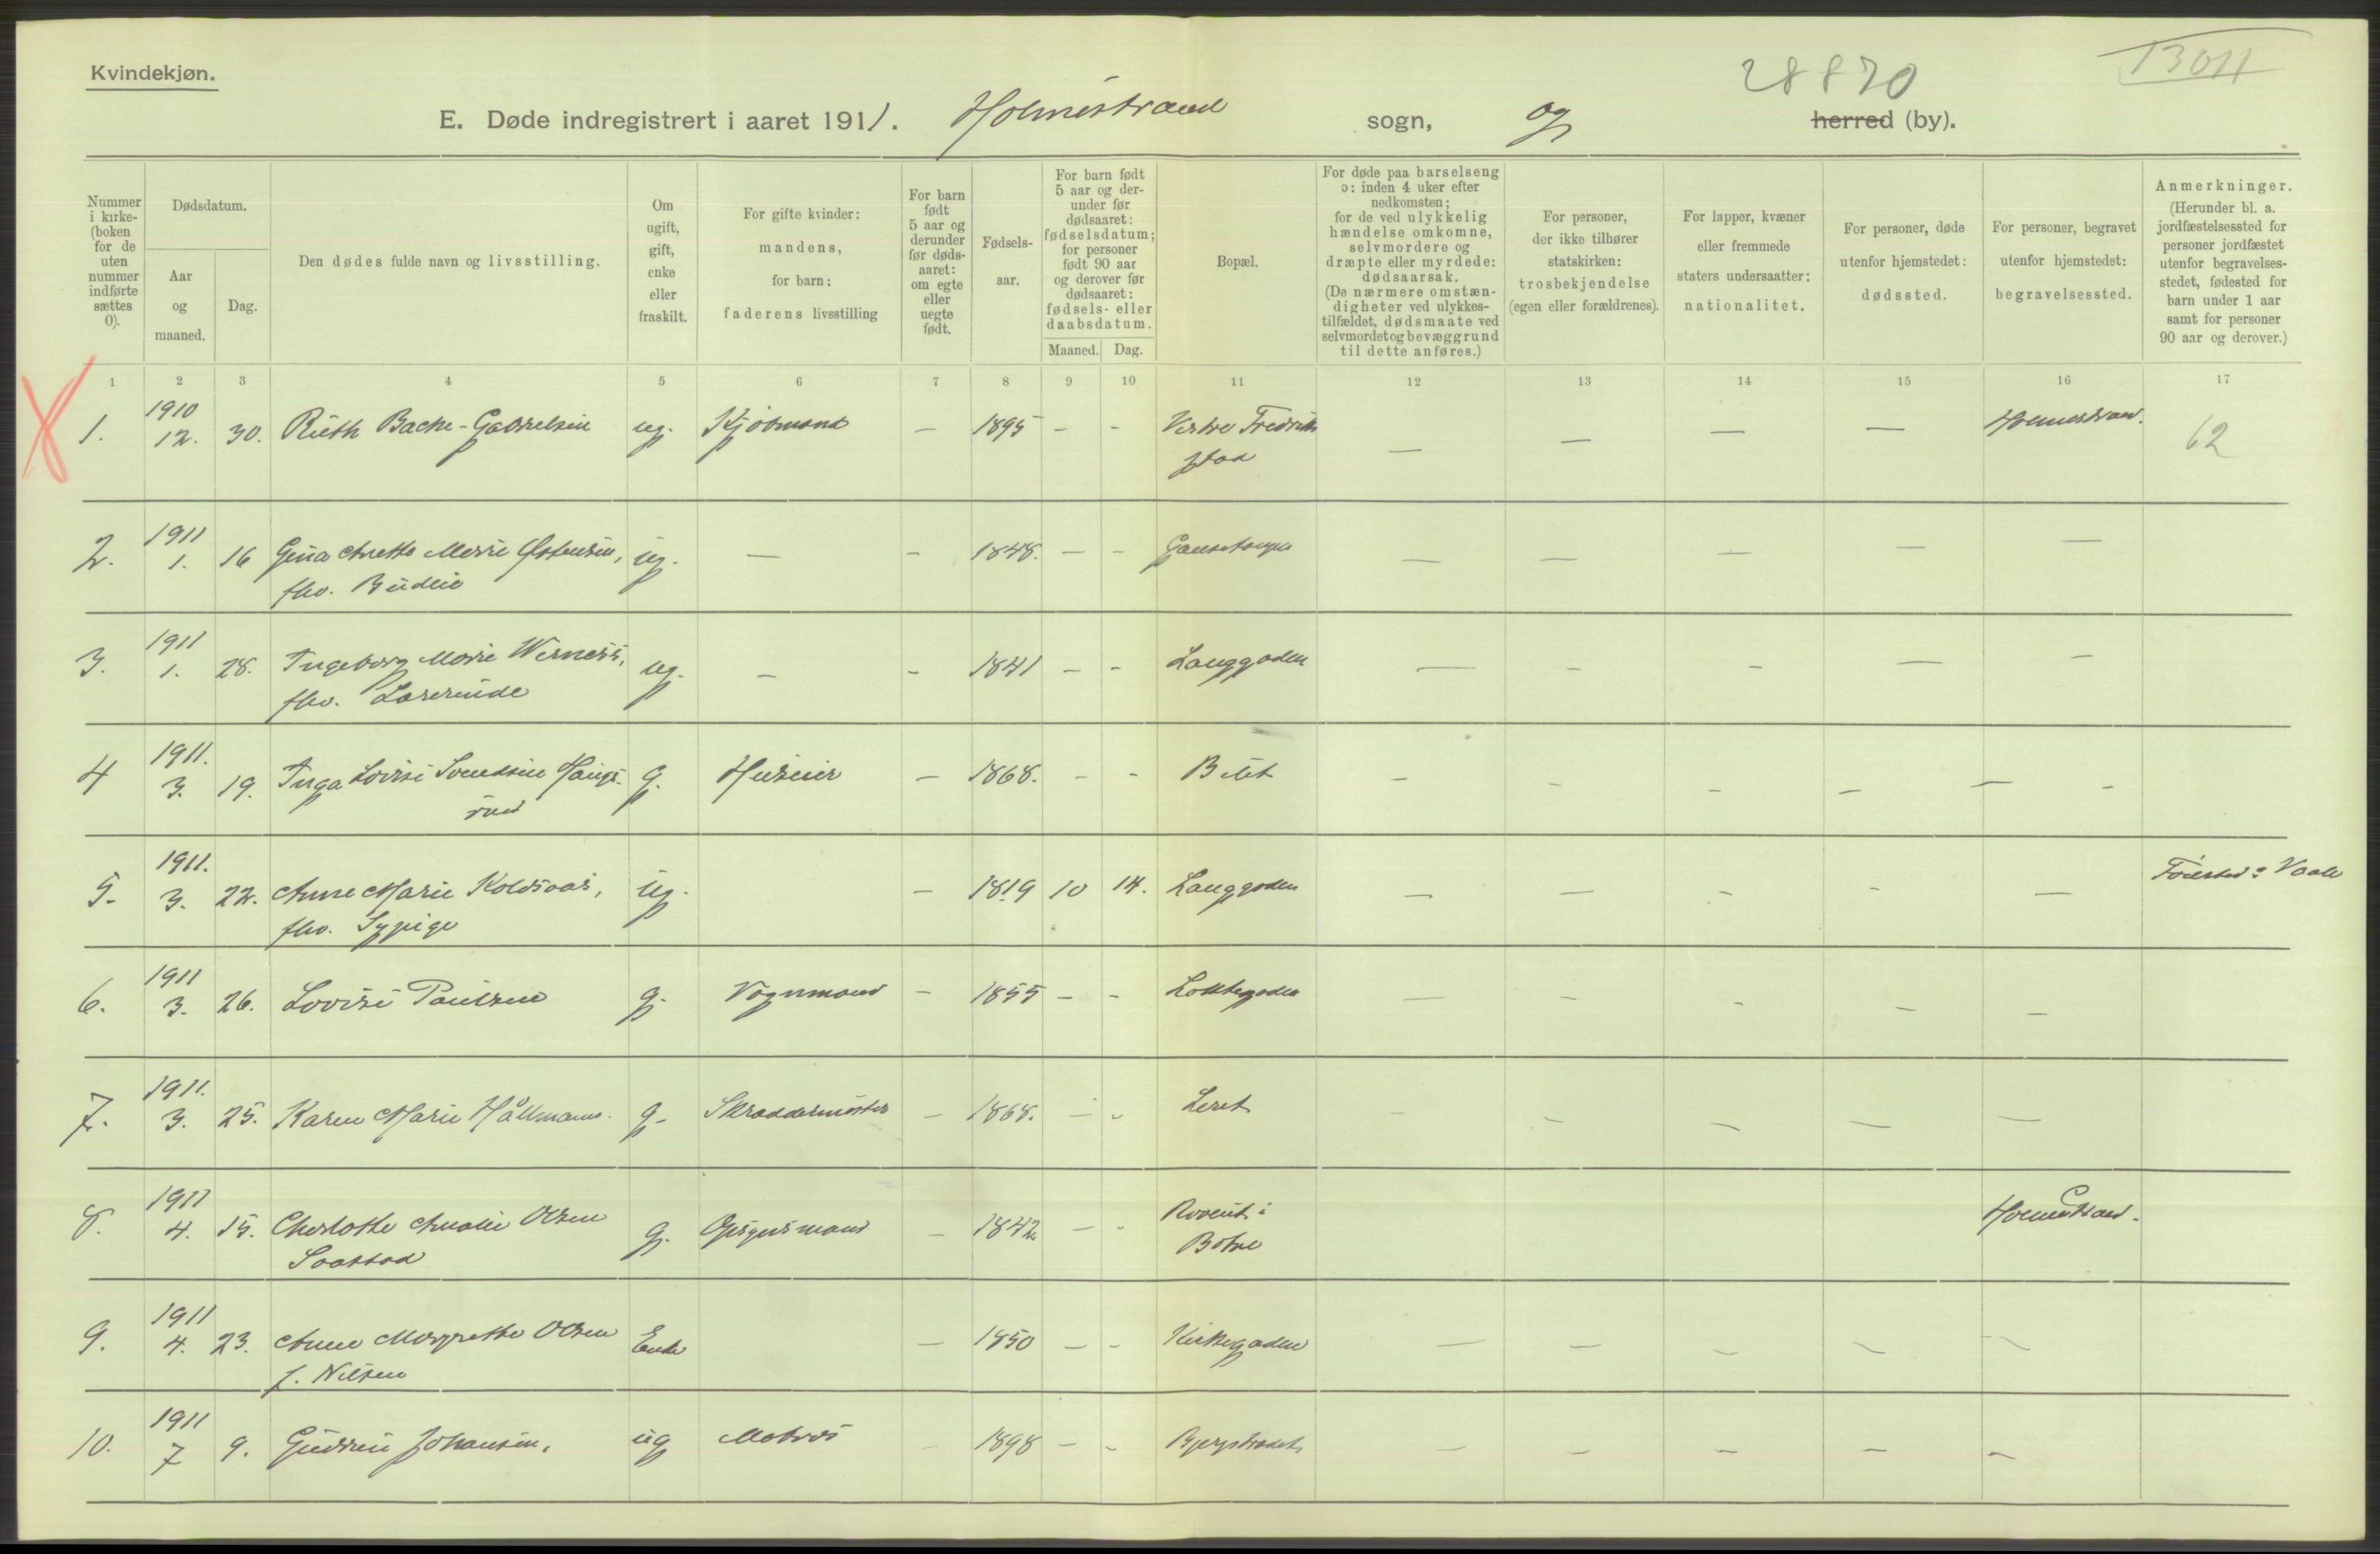 Kvindekjøn.
28870
13011
E. Døde indregistrert i aaret 1911. Holmestrand sogn, og herred (by).
Nummer i kirke- (boken for de uten nummer indførte sættes 0).
Dødsdatum.
Aar og maaned.
Dag.
Den dødes fulde navn og livsstilling.
Om ugift, gift, enke eller fraskilt.
For gifte kvinder: mandens, for barn: faderens livsstilling
For barn født 5 aar og derunder før døds- aaret: om egte eller uegte født.
Fødsels- aar.
For barn født 5 aar og der- under før dødsaaret: fødselsdatum; for personer født 90 aar og derover før dødsaaret: fødsels- eller daabsdatum.
Maaned. Dag.
Bopæl.
For døde paa barselseng ɔ: inden 4 uker efter nedkomsten; for de ved ulykkelig hændelse omkomne, selvmordere og dræpte eller myrdede: dødsaarsak. (De nærmere omstæn- digheter ved ulykkes- tilfældet, dødsmaate ved selvmordet og bevæggrund til dette anføres.)
For personer, der ikke tilhører statskirken: trosbekjendelse (egen eller forældrenes).
For lapper, kvæner eller fremmede staters undersaatter: nationalitet.
For personer, døde utenfor hjemstedet: dødssted.
For personer, begravet utenfor hjemstedet: begravelsessted.
Anmerkninger. (Herunder bl. a. jordfæstelsessted for personer jordfæstet utenfor begravelses- stedet, fødested for barn under 1 aar samt for personer 90 aar og derover.)
1 2 3 4 5 6 7 8 9 10 11 12 13 14 15 16 17
1910
1. 12. 30. Ruth Bache-Gabrielsen ug. Kjøbmand — 1895 — - Vestre Fredrik — — — — Holmestrand. 62
stad
1911
2. 1. 16 Gina Anette Marie Østensen, ug. — - 1848. — - — — — — —
fhv. Budeie
1911
3. 1. 28. Ingeborg Marie Werness, ug. — - 1841 — - Langgaden — — — — —
fhv. Lærerinde
1911.
4 3. 19. Inga Lovise Svendsen Haugs- g. Huseier — 1868. - - — — — — — -
rud
1911.
5. 3. 22. Anne Marie Koldsaas, ug. — 1819 10 14. Langgaden — — - - — Fødested: Vaale
fhv. Sypige
1911
6. 3. 26. Lovise Paulsen g. Vognmand — 1855 — - — — - — —
1911.
7. 3. 25. Karen Marie Hållmann. g. Skræddermester — 1868. — - Leret - — — — —
1911
8. 4. 15. Charlotte Amalie Olsen g. Opsynsmand — 1842 — - i Holmestrand.
Saastad Botne
1911
9. 4. 23. Anne Margrethe Olsen Enke — 1850 — - Kirkegaden — — — — —
f. Nilsen
1911
10. 7 9. Gudrun Johansen, ug Matros — 1898 — - Bjergstrædet — — — — —